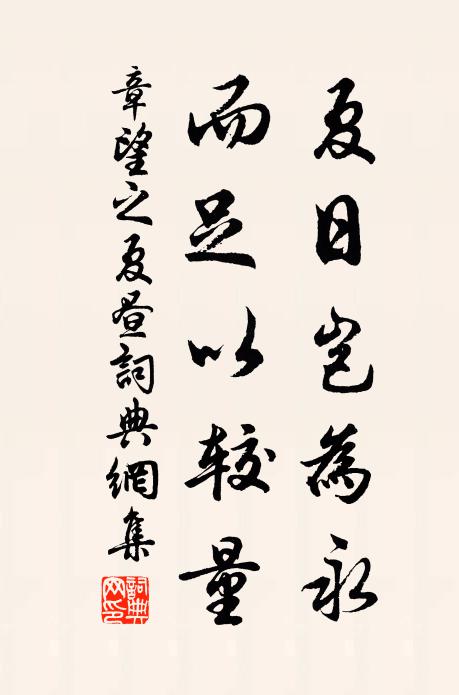 夏日岂為永
而足以较量
章望之夏昼詞典網集
詞典网印